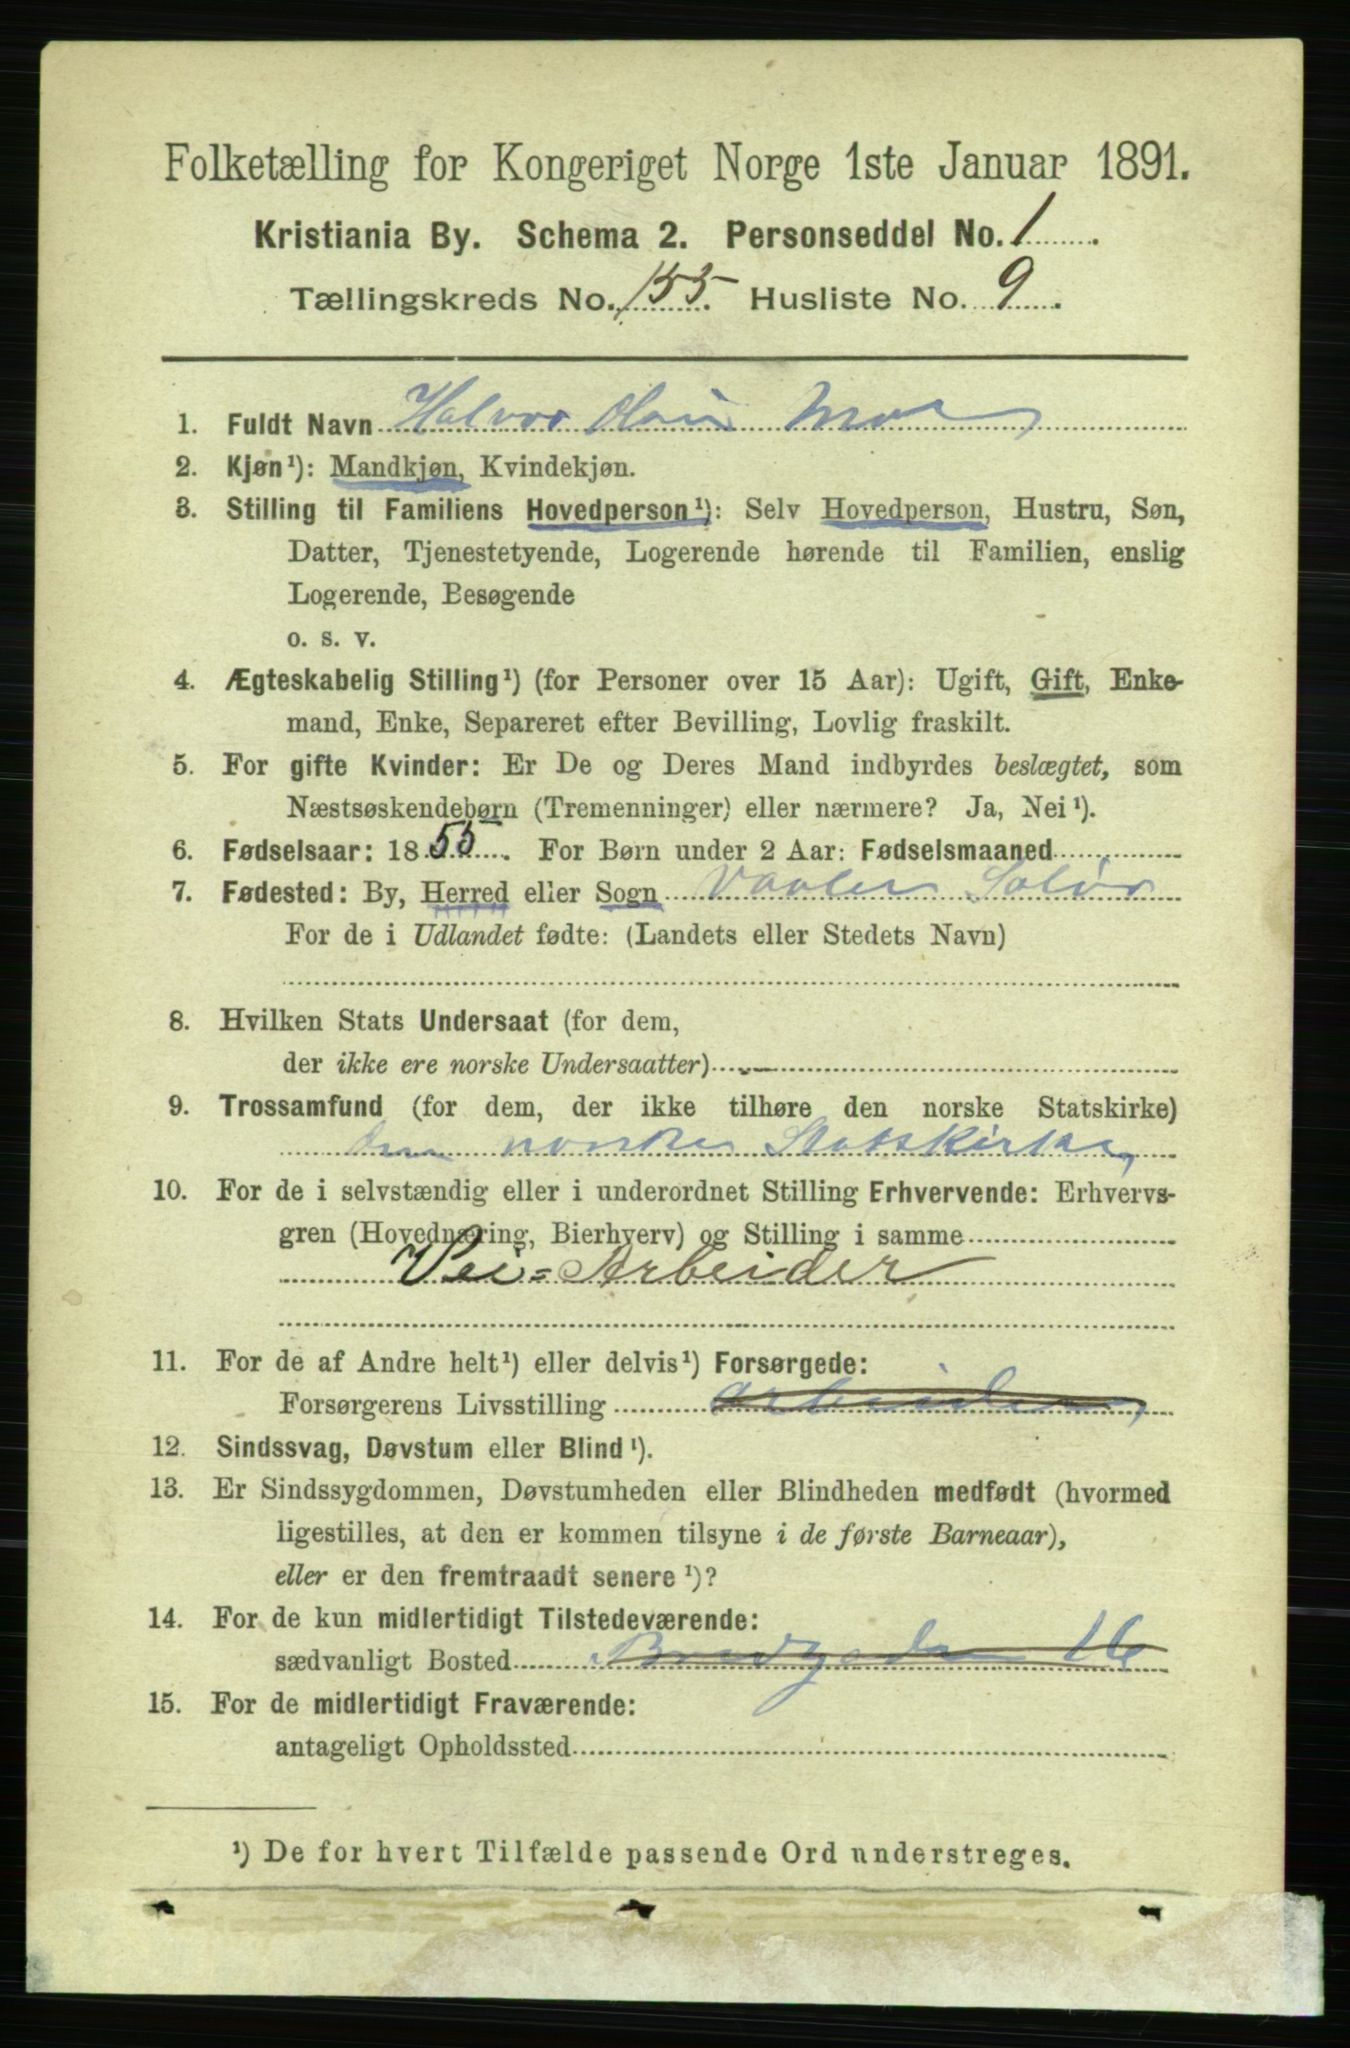 Folketælling for Kongeriget Norge 1ste Januar 1891.
Kristiania By. Schema 2. Personseddel No. 1
Tællingskreds No. 155. Husliste No. 9.
1. Fuldt Navn Halvor Olsen Moe
2. Kjøn¹): Mandkjøn, Kvindekjøn.
3. Stilling til Familiens Hovedperson¹): Selv Hovedperson, Hustru, Søn,
Datter, Tjenestetyende, Logerende hørende til Familien, enslig
Logerende, Besøgende
o. s. v.
4. Ægteskabelig Stilling¹) (for Personer over 15 Aar): Ugift, Gift, Enke-
mand, Enke, Separeret efter Bevilling, Lovlig fraskilt.
5. For gifte Kvinder: Er De og Deres Mand indbyrdes beslægtet, som
Næstsøskendebørn (Tremenninger) eller nærmere? Ja, Nei¹).
6. Fødselsaar: 1855. For Børn under 2 Aar: Fødselsmaaned
7. Fødested: By, Herred eller Sogn Vaaler Solør
For de i Udlandet fødte: (Landets eller Stedets Navn)
8. Hvilken Stats Undersaat (for dem,
der ikke ere norske Undersaatter)
9. Trossamfund (for dem, der ikke tilhøre den norske Statskirke)
den norske Statskirke,
10. For de i selvstændig eller i underordnet Stilling Erhvervende: Erhvervs-
gren (Hovednæring, Bierhverv) og Stilling i samme
Vei=Arbeider
11. For de af Andre helt¹) eller delvis¹) Forsørgede:
Forsørgerens Livsstilling arbeider,
12. Sindssvag, Døvstum eller Blind¹).
13. Er Sindssygdommen, Døvstumheden eller Blindheden medfødt (hvormed
ligestilles, at den er kommen tilsyne i de første Barneaar),
eller er den fremtraadt senere¹)?
14. For de kun midlertidigt Tilstedeværende:
sædvanligt Bosted Bredgade 16
15. For de midlertidigt Fraværende:
antageligt Opholdssted
¹) De for hvert Tilfælde passende Ord understreges.